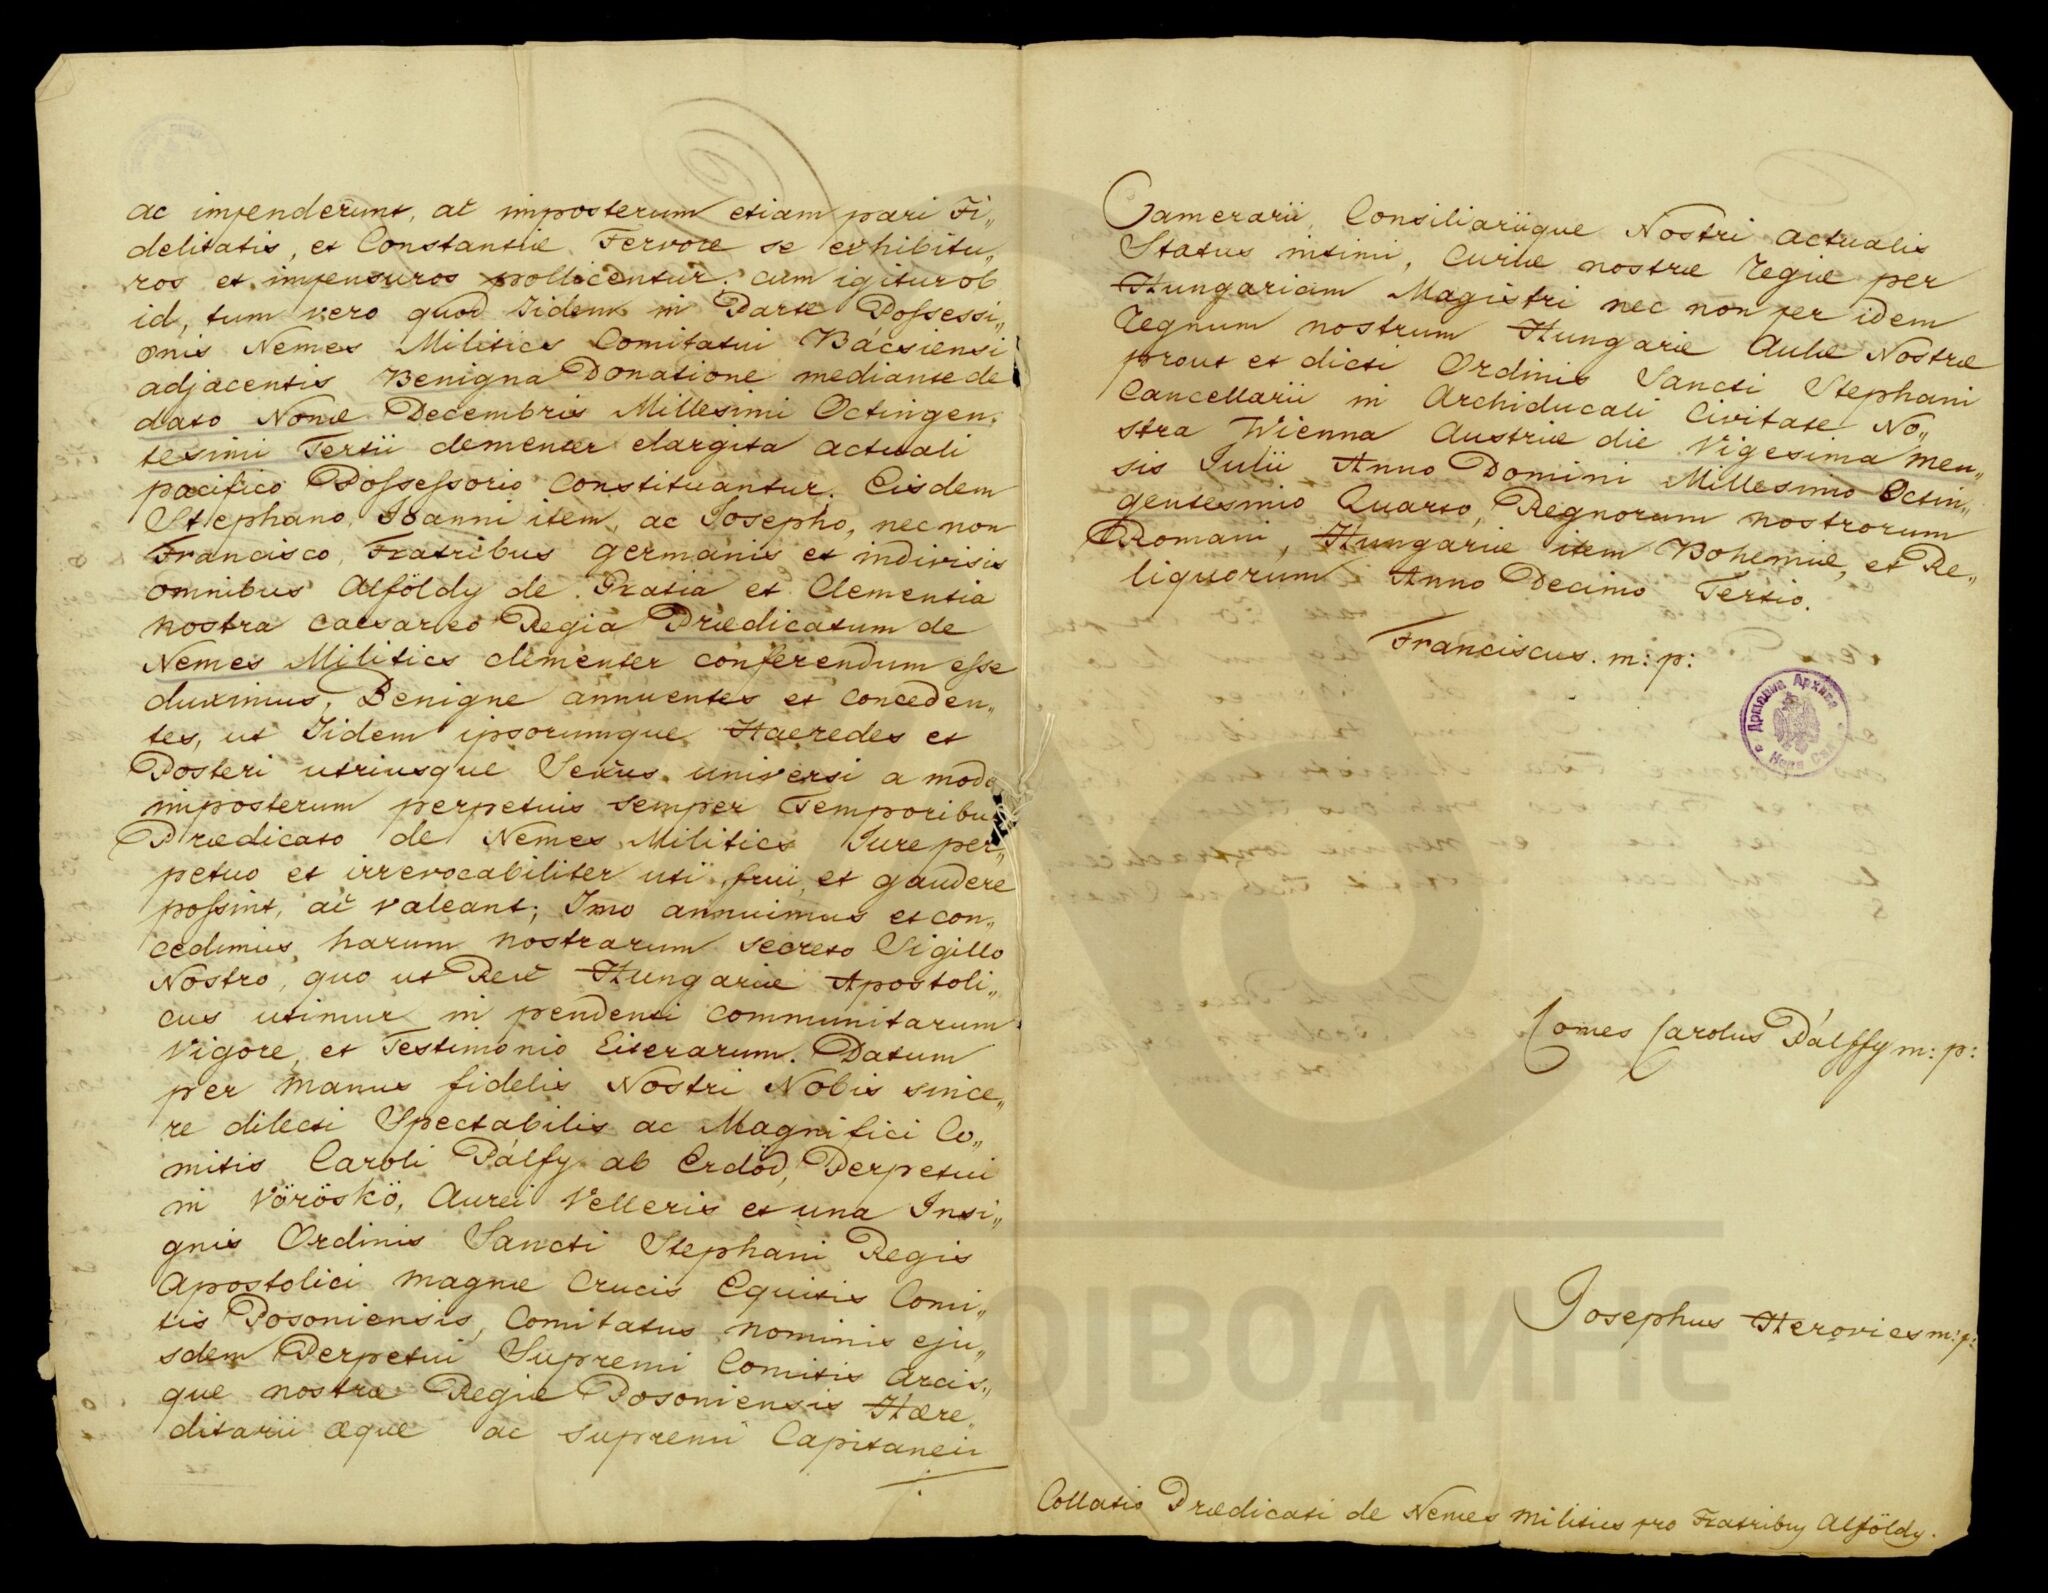 ac impenderunt, ac imposterum etiam pari Fi„
delitatis, et Constantiæ Fervore se exhibitu„
ros et impensuros pollicentur; cum igitur ob
id, tum vero quod Iidem in Parte Possessi„
onis Nemes Militics Comitatui Bácsiensi
adjacentis Benigna Donatione mediante de
dato Nonæ Decembris Millesimi Octingen„
tesimi Tertii clementer elargita actuali
pacifico Possessorio Constituantur; Eisdem
Stephano, Ioanni item, ac Iosepho, nec non
Francisco, Fratribus germanis et indivisis
omnibus Alföldy de Gratia et Clementia
nostra Caesareo Regia Prædicatum de
Nemes Militics clementer conferendum esse
duximus, Benigne annuentes et conceden„
tes, ut Iidem ipsorumque Haeredes et
Posteri utriusque Sexus universi a modo
imposterum perpetuis semper Temporibus
Prædicato de Nemes Militics Iure per„
petuo et irrevocabiliter uti, frui, et gaudere
possint, ac valeant; Imo annuimus et con„
cedimus, harum nostrarum secreto Sigillo
Nostro, quo ut Rex Hungariæ Apostoli„
cus utimur in pendenti communitarum
Vigore, et Testimonio Literarum. Datum
per manus fidelis Nostri Nobis since„
re dilecti Spectabilis ac Magnifici Co„
mitis Caroli Pálfy ab Erdöd, Perpetui
in Vöröskö, Aurei Velleris et una Insi„
gnis Ordinis Sancti Stephani Regis
Apostolici magnæ Crucis Equitis Comi„
tis Posoniensis, Comitatus nominis eju„
sdem Perpetui Supremi Comitis Arcis„
que nostræ Regiæ Posoniensis Hære„
ditarii æque ac supremi Capitanei
Camerarii Consiliariique Nostri actualis
Status intimi, Curiæ nostræ Regiæ per
Hungariam Magistri nec non per idem
Regnum nostrum Hungariæ Aulæ Nostræ
prout et dicti Ordinis Sancti Stephani
Cancellarii in Archiducali Civitate No„
stra Vienna Austriæ die Vigesima men„
sis Iulii Anno Domini Millesimo Octin„
gentesimo Quarto, Regnorum nostrorum
Romani, Hungariæ item Bohemiæ, et Re„
liquorum Anno Decimo Tertio.
Franciscus. m: p:
Државна Архива
Нови Сад
Comes Carolus Pálffy m: p:
Josephus Herovics m: p:
Collatio Prædicati de Nemes Militics pro Fratribus Alföldy.
ВОЈВОДИНЕ